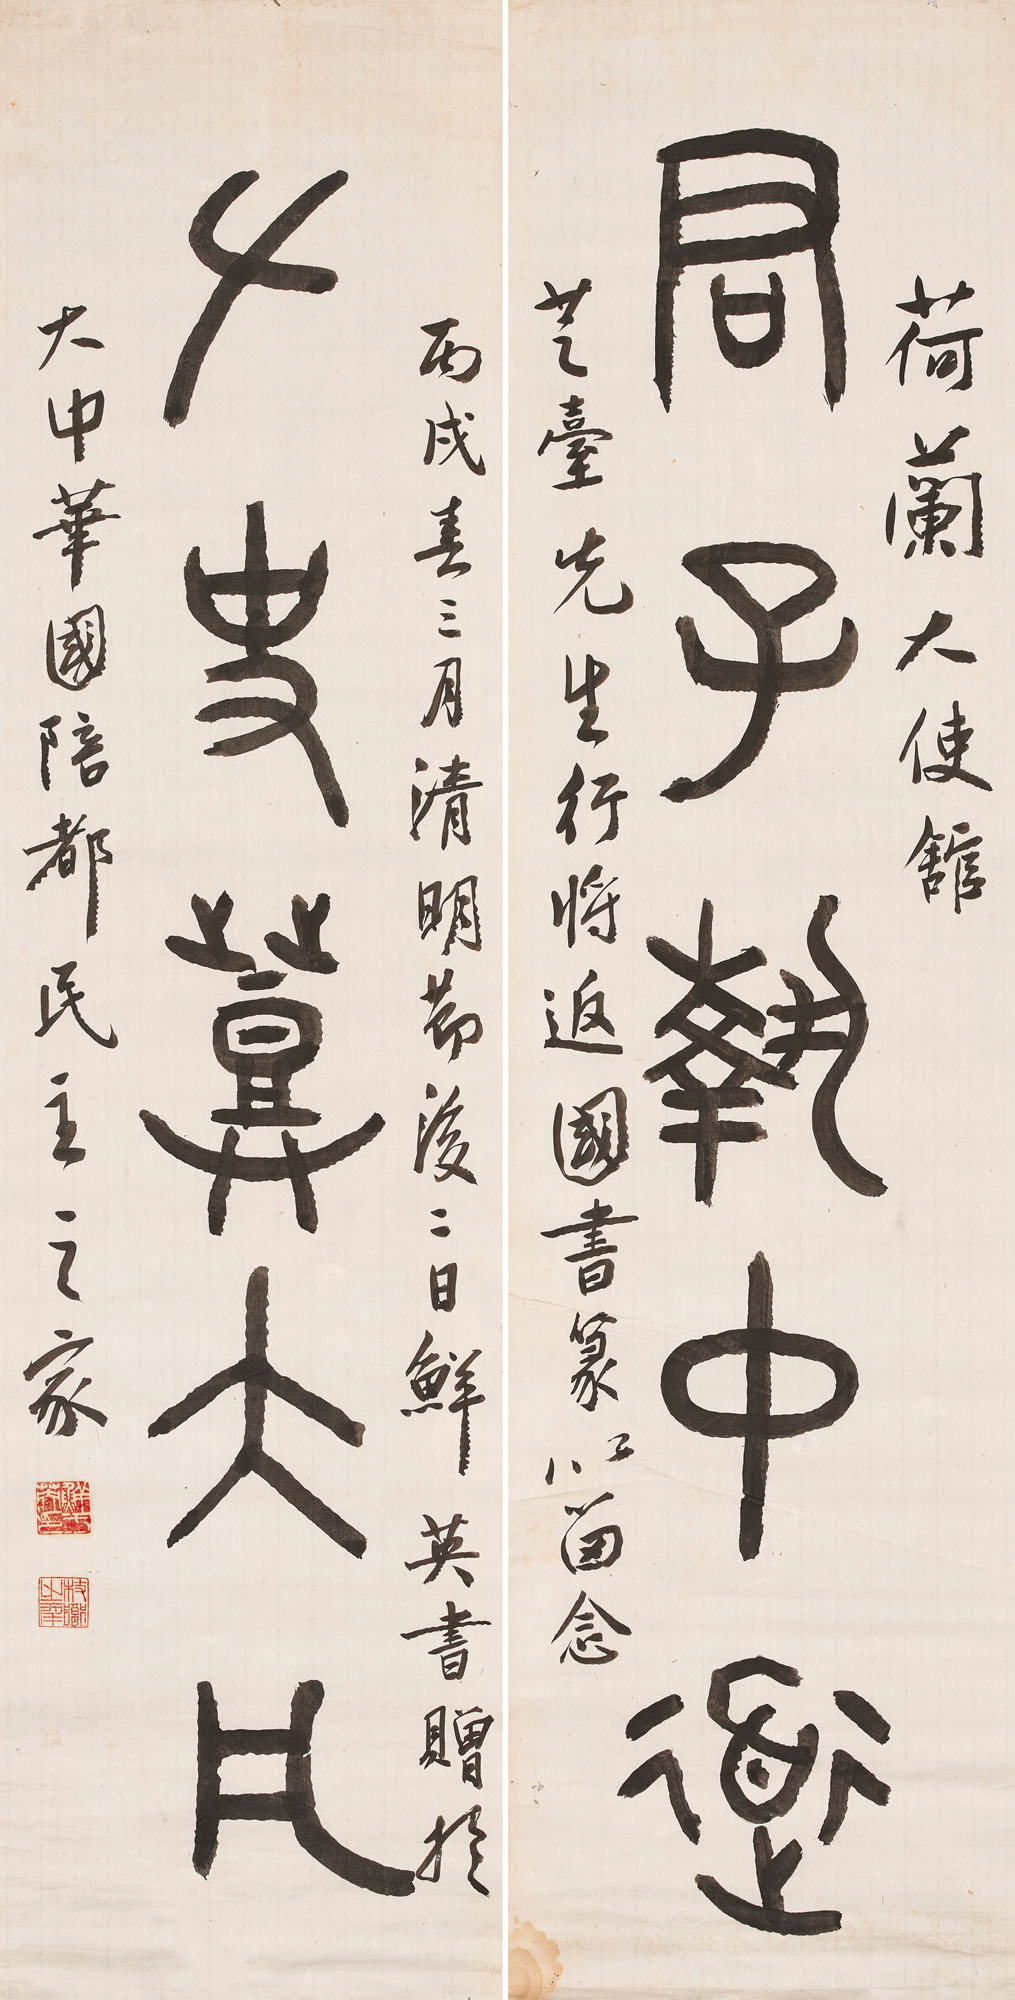 荷蘭大使館
君子執中道
芝臺先生行將返國書篆以留念
丙戌春三月清明節後二日鮮英書贈於
史大凡
大中華國陪都民主之家